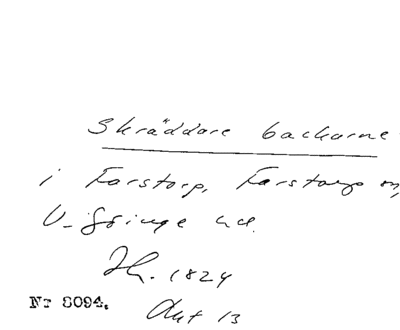 Skräddare backarne
i Farstorp, Farstorps sn,
V. Göinge hd.
1824
Nr 8094.
Akt 13